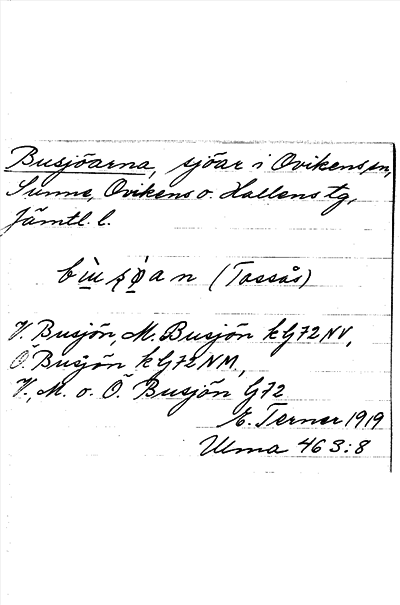 Busjöarna, sjöar i Ovikens sn,
Sunne, Ovikens o. Hallens tg,
Jämtl. l.
(Tossås)
V. Busjön, M. Busjön k G72 NV,
Ö. Busjön k G72 NM,
V., M. o. Ö. Busjön G72
E. Terner 1919
Ulma 463:8